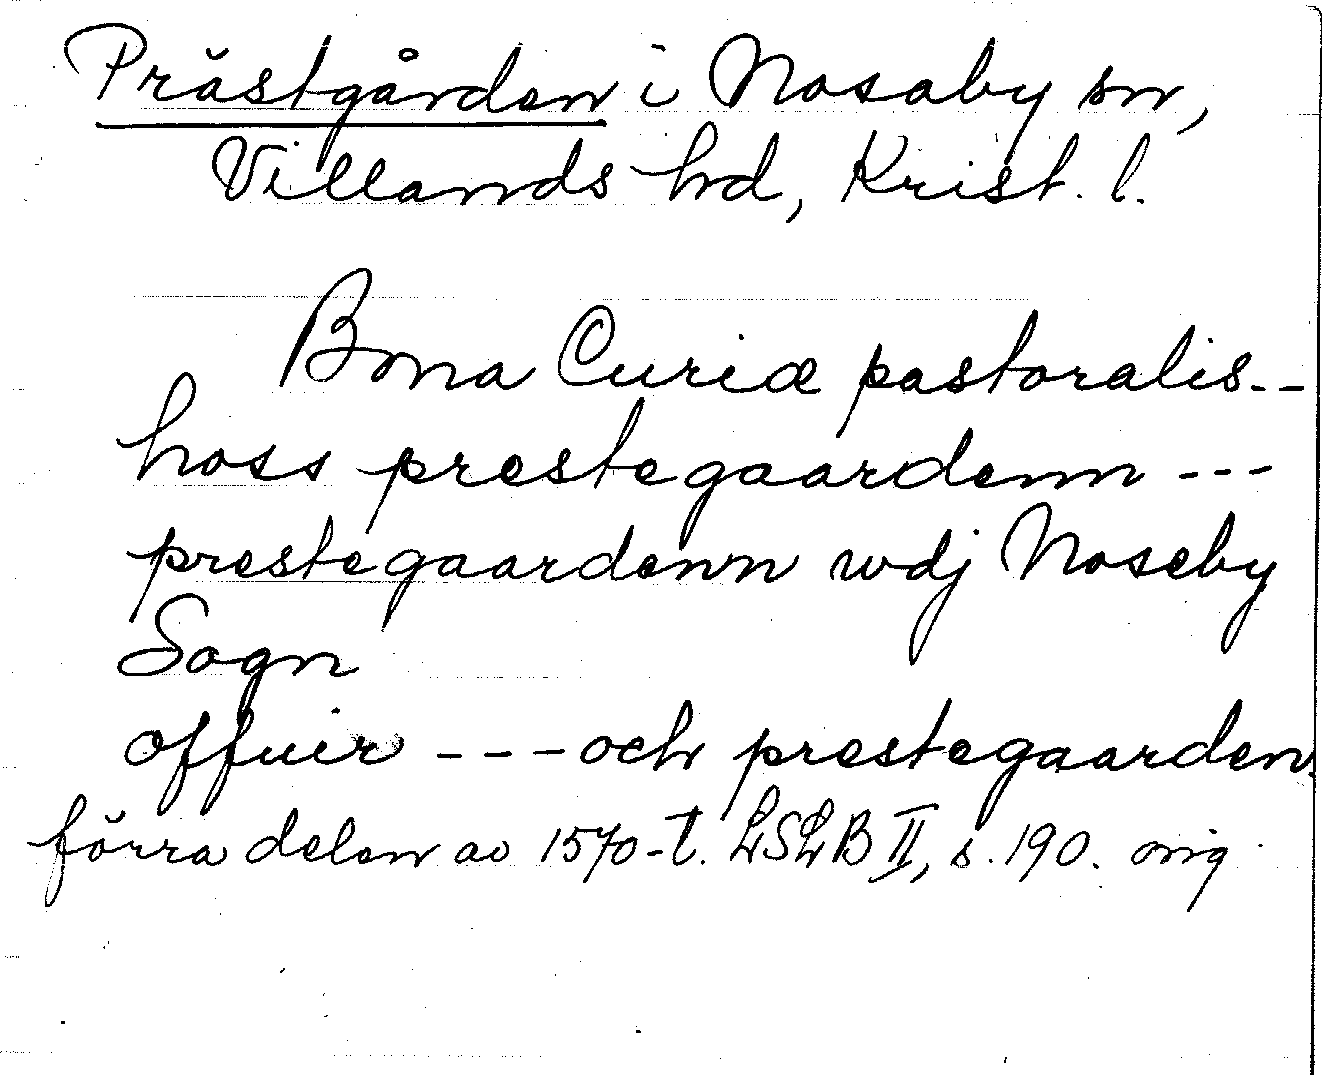 Prästgården i Nosaby sn,
Villands hd, Krist. l.
Bona Curiæ pastoralis--
hoss prestegaardenn ---
prestegaardenn wdj Noseby
Sogn
offuer --- och prestegaarden
förra delen av 1570-t. LSLB II, s. 190. orig